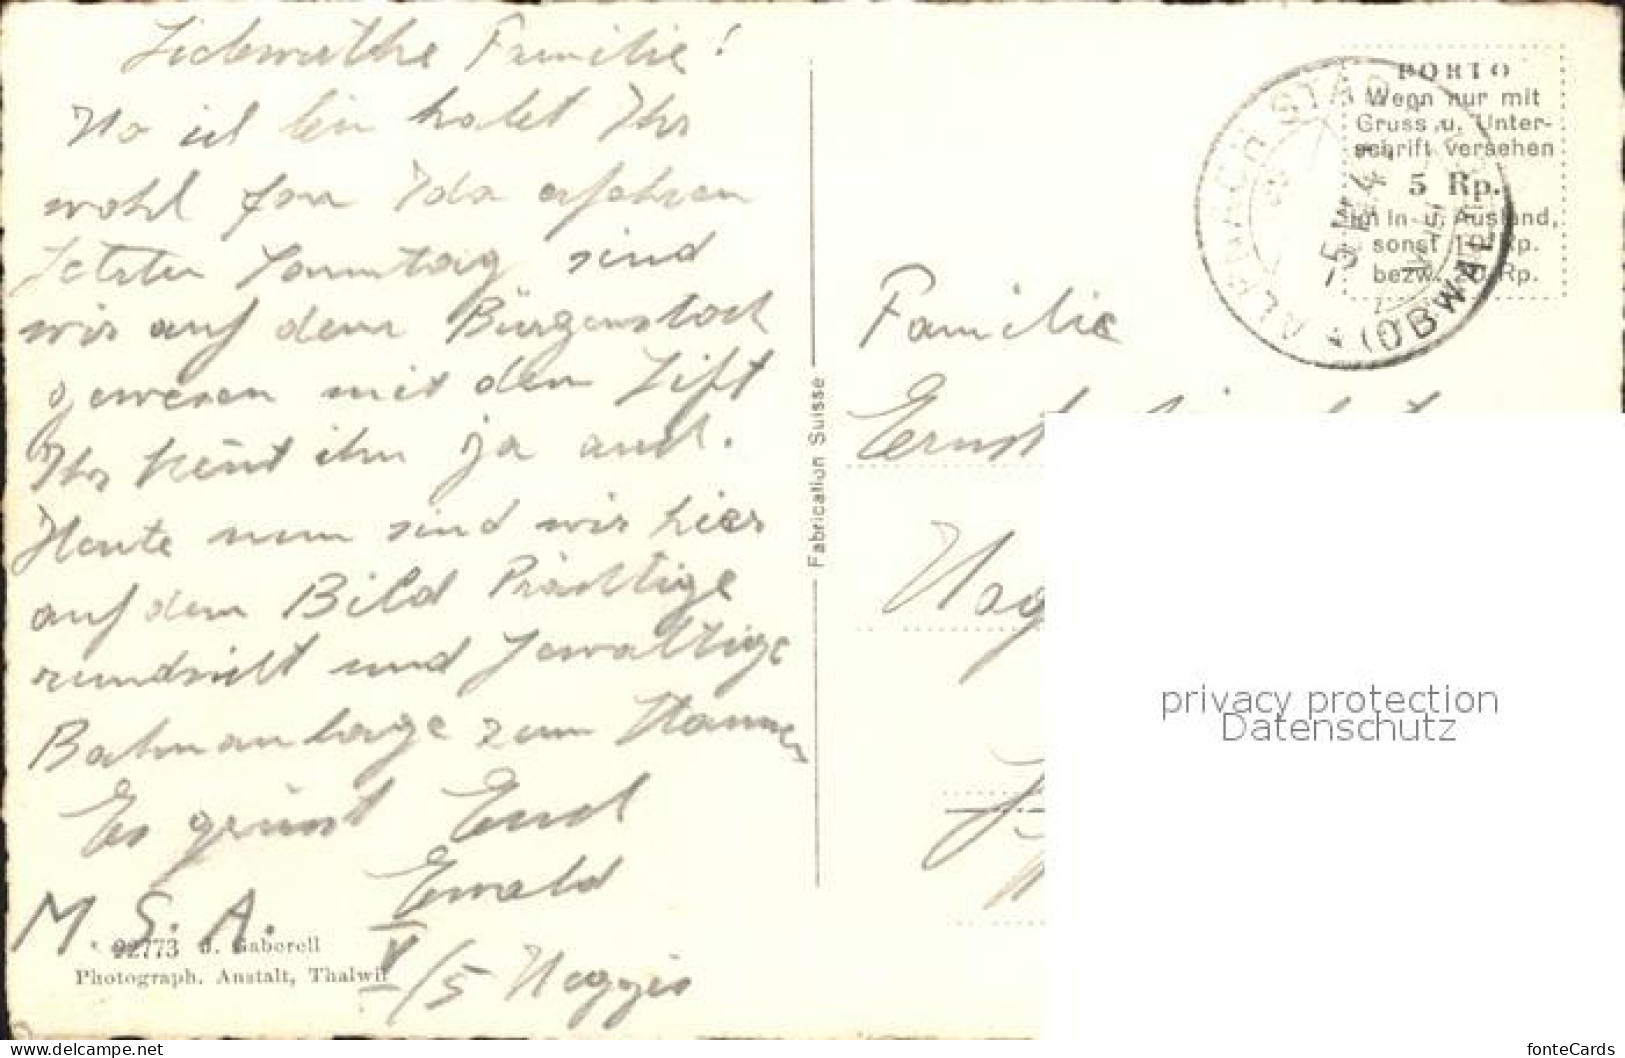 Liebwerthe Familie!
Wo ich bin habt Ihr
wohl fon Ida erfahren
Letzten Sonntag sind
wir auf dem Bürgenstock
gewesen mit dem Lift
Ihr kent ihn ja auch.
Heute nun sind wir hier
auf dem Bild Prächtige
rundsicht und gewaltige
Bahnanlage zum
Es grüsst Euch
Ewald
M. S. A.
V/5
22773 J. Gaberell
Photograph. Anstalt, Thalwil
Fabrication Suisse
PORTO
Wenn nur mit
Gruss u. Unter-
schrift versehen
5 Rp.
im In- u. Ausland,
sonst 10 Rp.
bezw. 20 Rp.
ALPNACH STAD
(OBWALDEN)
Familie
Ernst
privacy protection
Datenschutz
www.delcampe.net
fonteCards